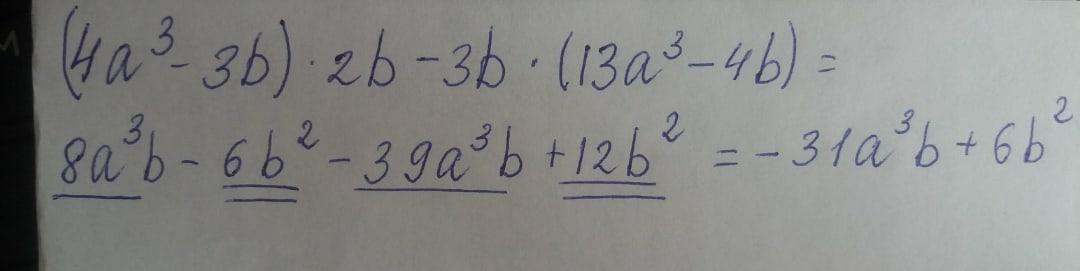 (4a³ - 3b) · 2b - 3b · (13a³ - 4b) =
8a³b - 6b² - 39a³b + 12b² = - 31a³b + 6b²